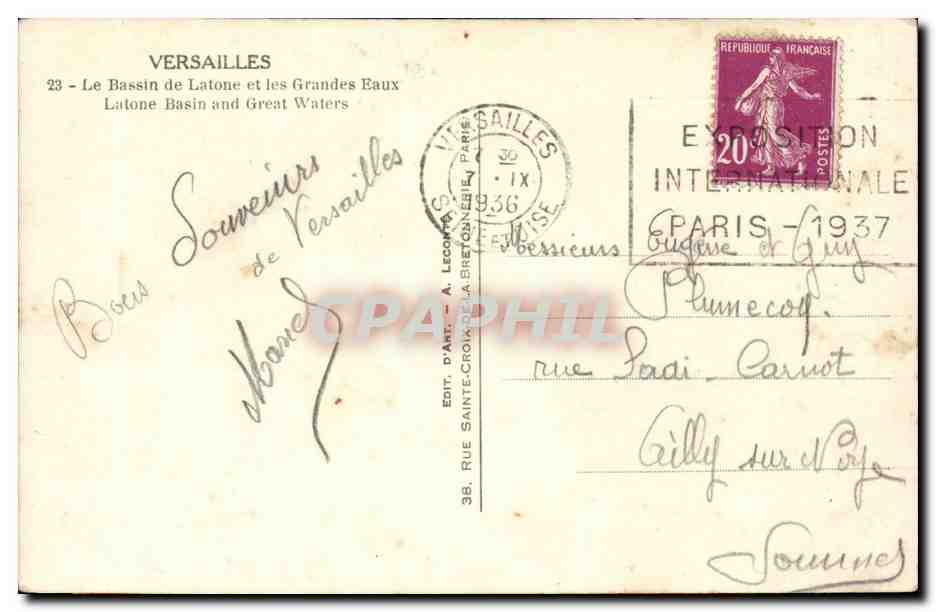 VERSAILLES
23 - Le Bassin de Latone et les Grandes Eaux
Latone Basin and Great Waters
Bons Souvenirs
de Versailles
Marcel
EDIT. D'ART. - A. LECONTE
38. RUE SAINTE-CROIX-DE-LA-BRETONNERIE PARIS
VERSAILLES
7 30
7 · IX
1936
SEINE ET OISE
REPUBLIQUE FRANÇAISE
20c
POSTES
EXPOSITION
INTERNATIONALE
PARIS - 1937
Messieurs Eugène et Guy
Plumecoq.
rue Sadi-Carnot
Ailly sur Noye
Somme
CPAPHIL